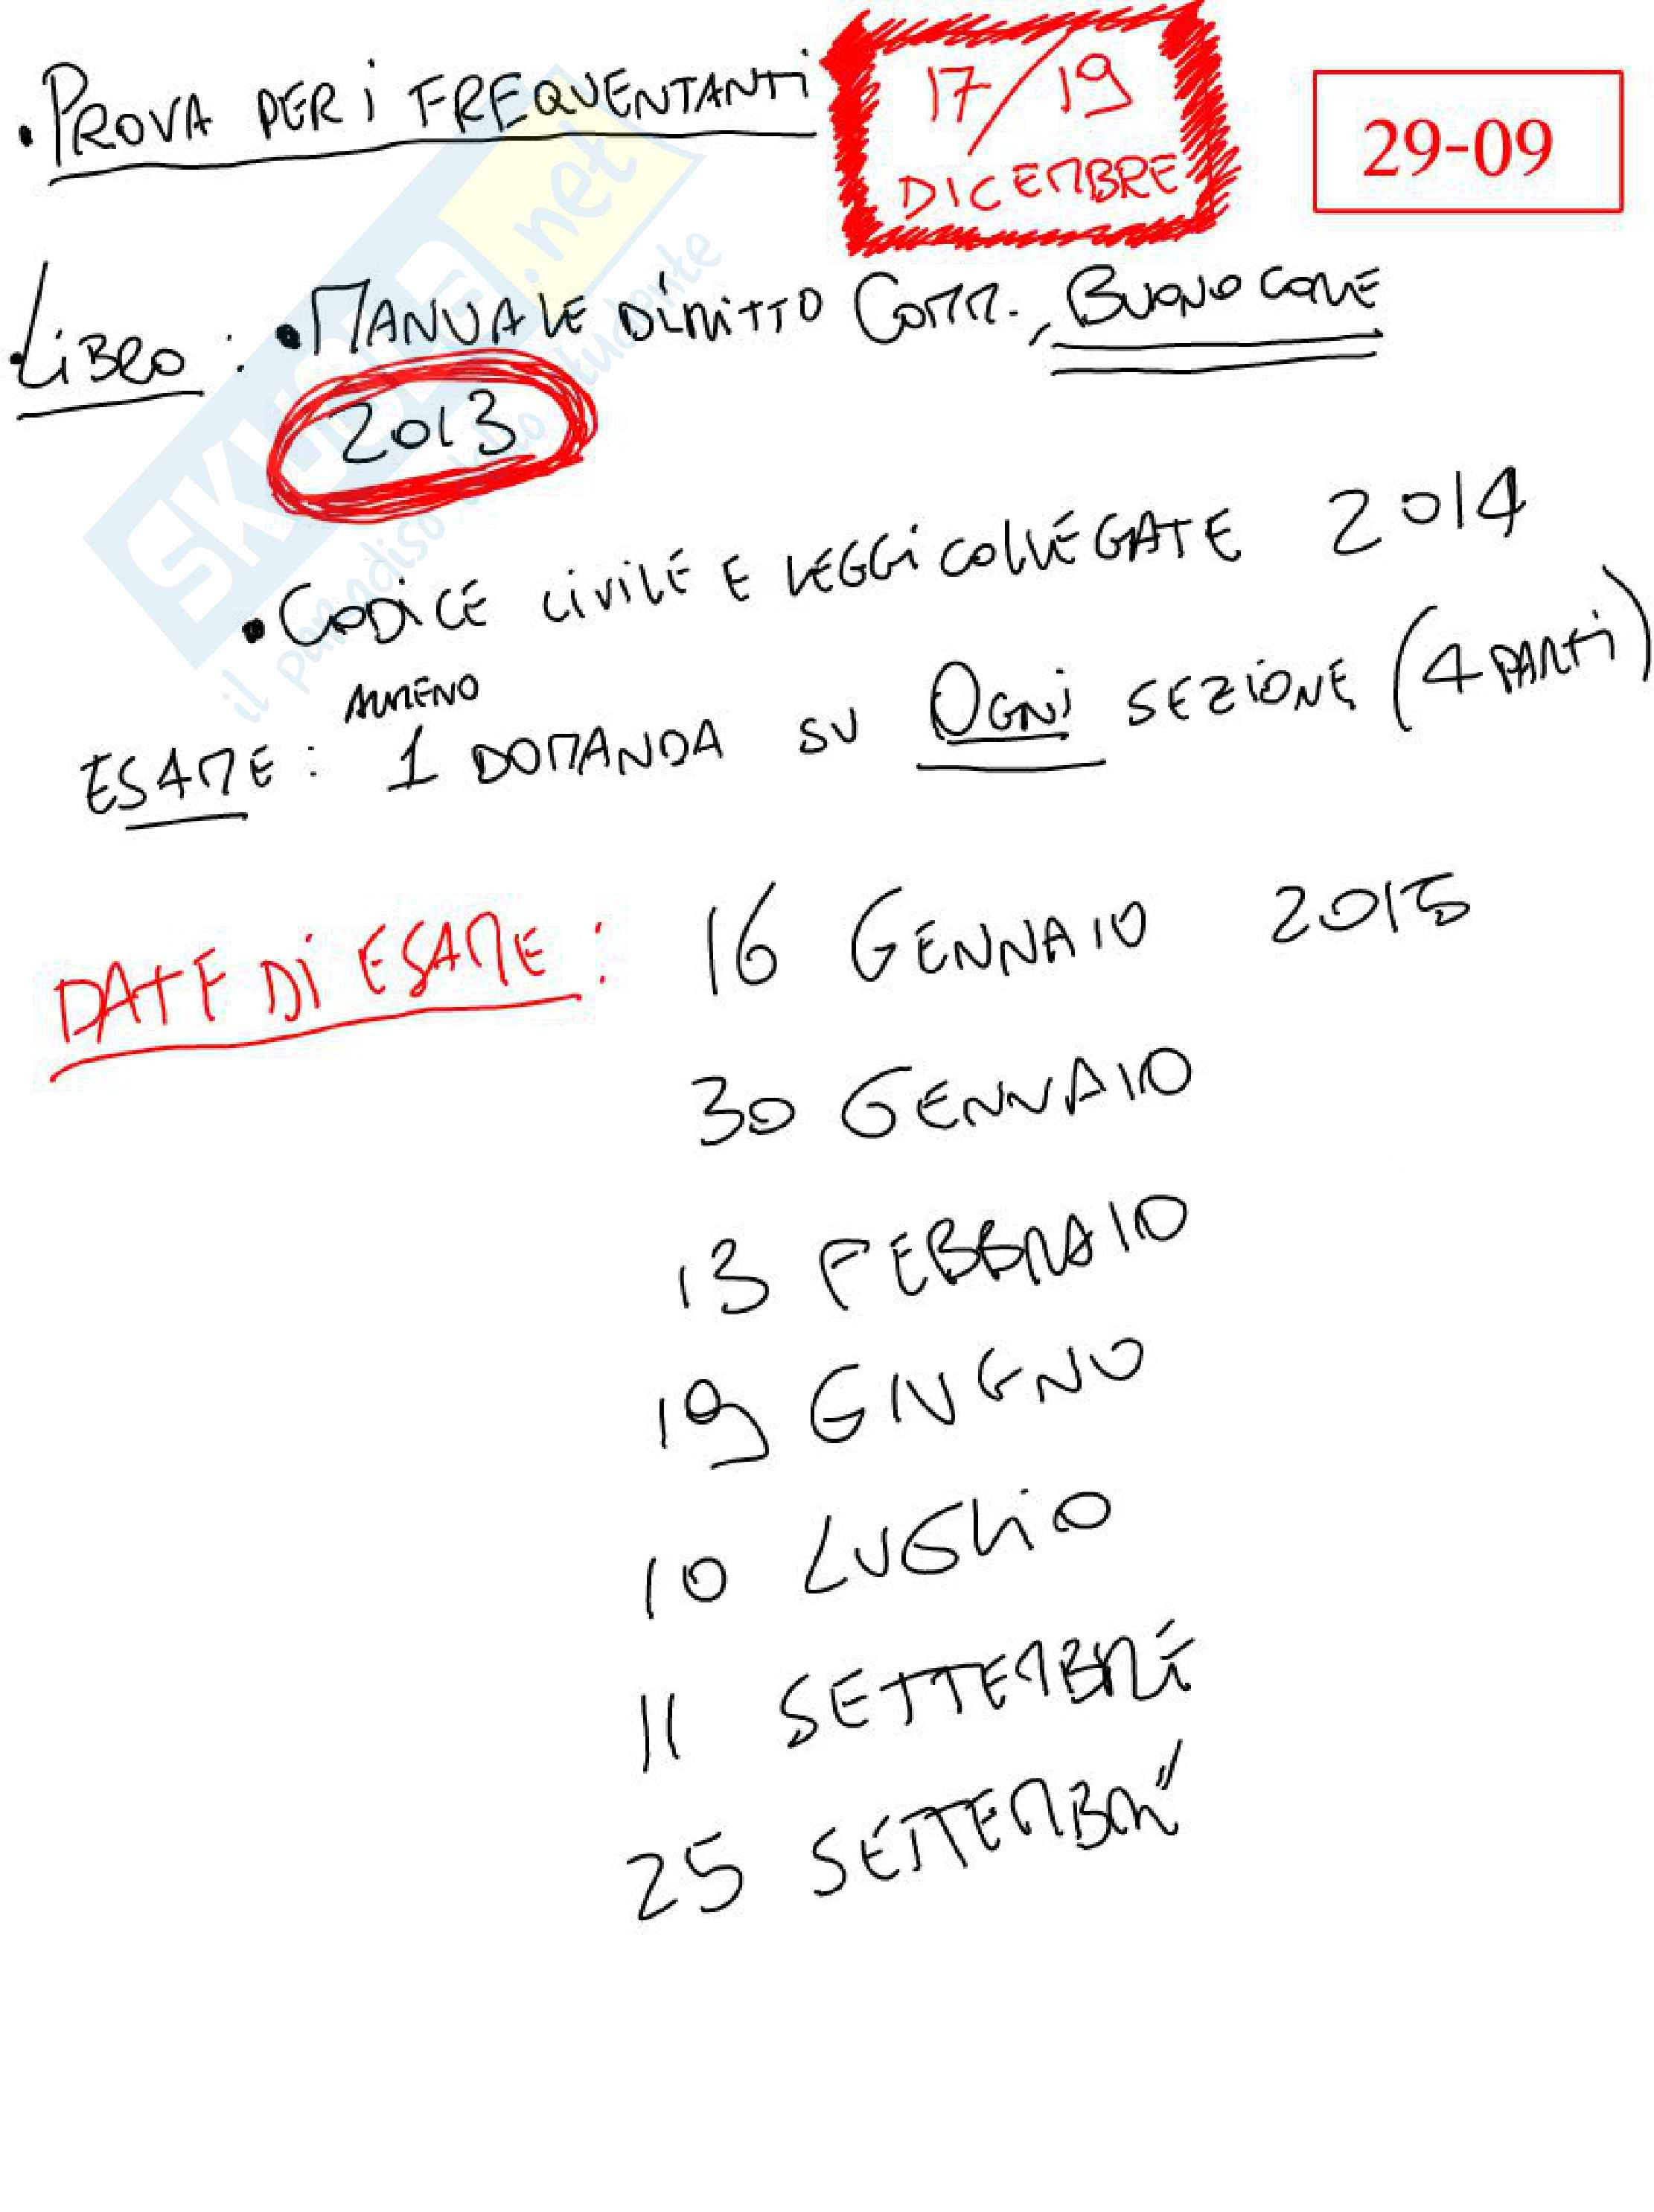 • PROVA PER i FREQUENTANTi 17/19 DICEMBRE
29-09
• LiBRO : • MANUALE DiRITTO COMM., BUONOCORE
2013
• CODiCE CiViLE E LEGGi COLLEGATE 2014
ALMENO
ESAME : 1 DOMANDA SU OGNi SEZiONE (4 PARTi)
DATE Di ESAME : 16 GENNAIO 2015
30 GENNAIO
13 FEBBRAIO
19 GIUGNO
10 LUGLiO
11 SETTEMBRE
25 SETTEMBRE
SKUOLA.net
il paradiso dello studente